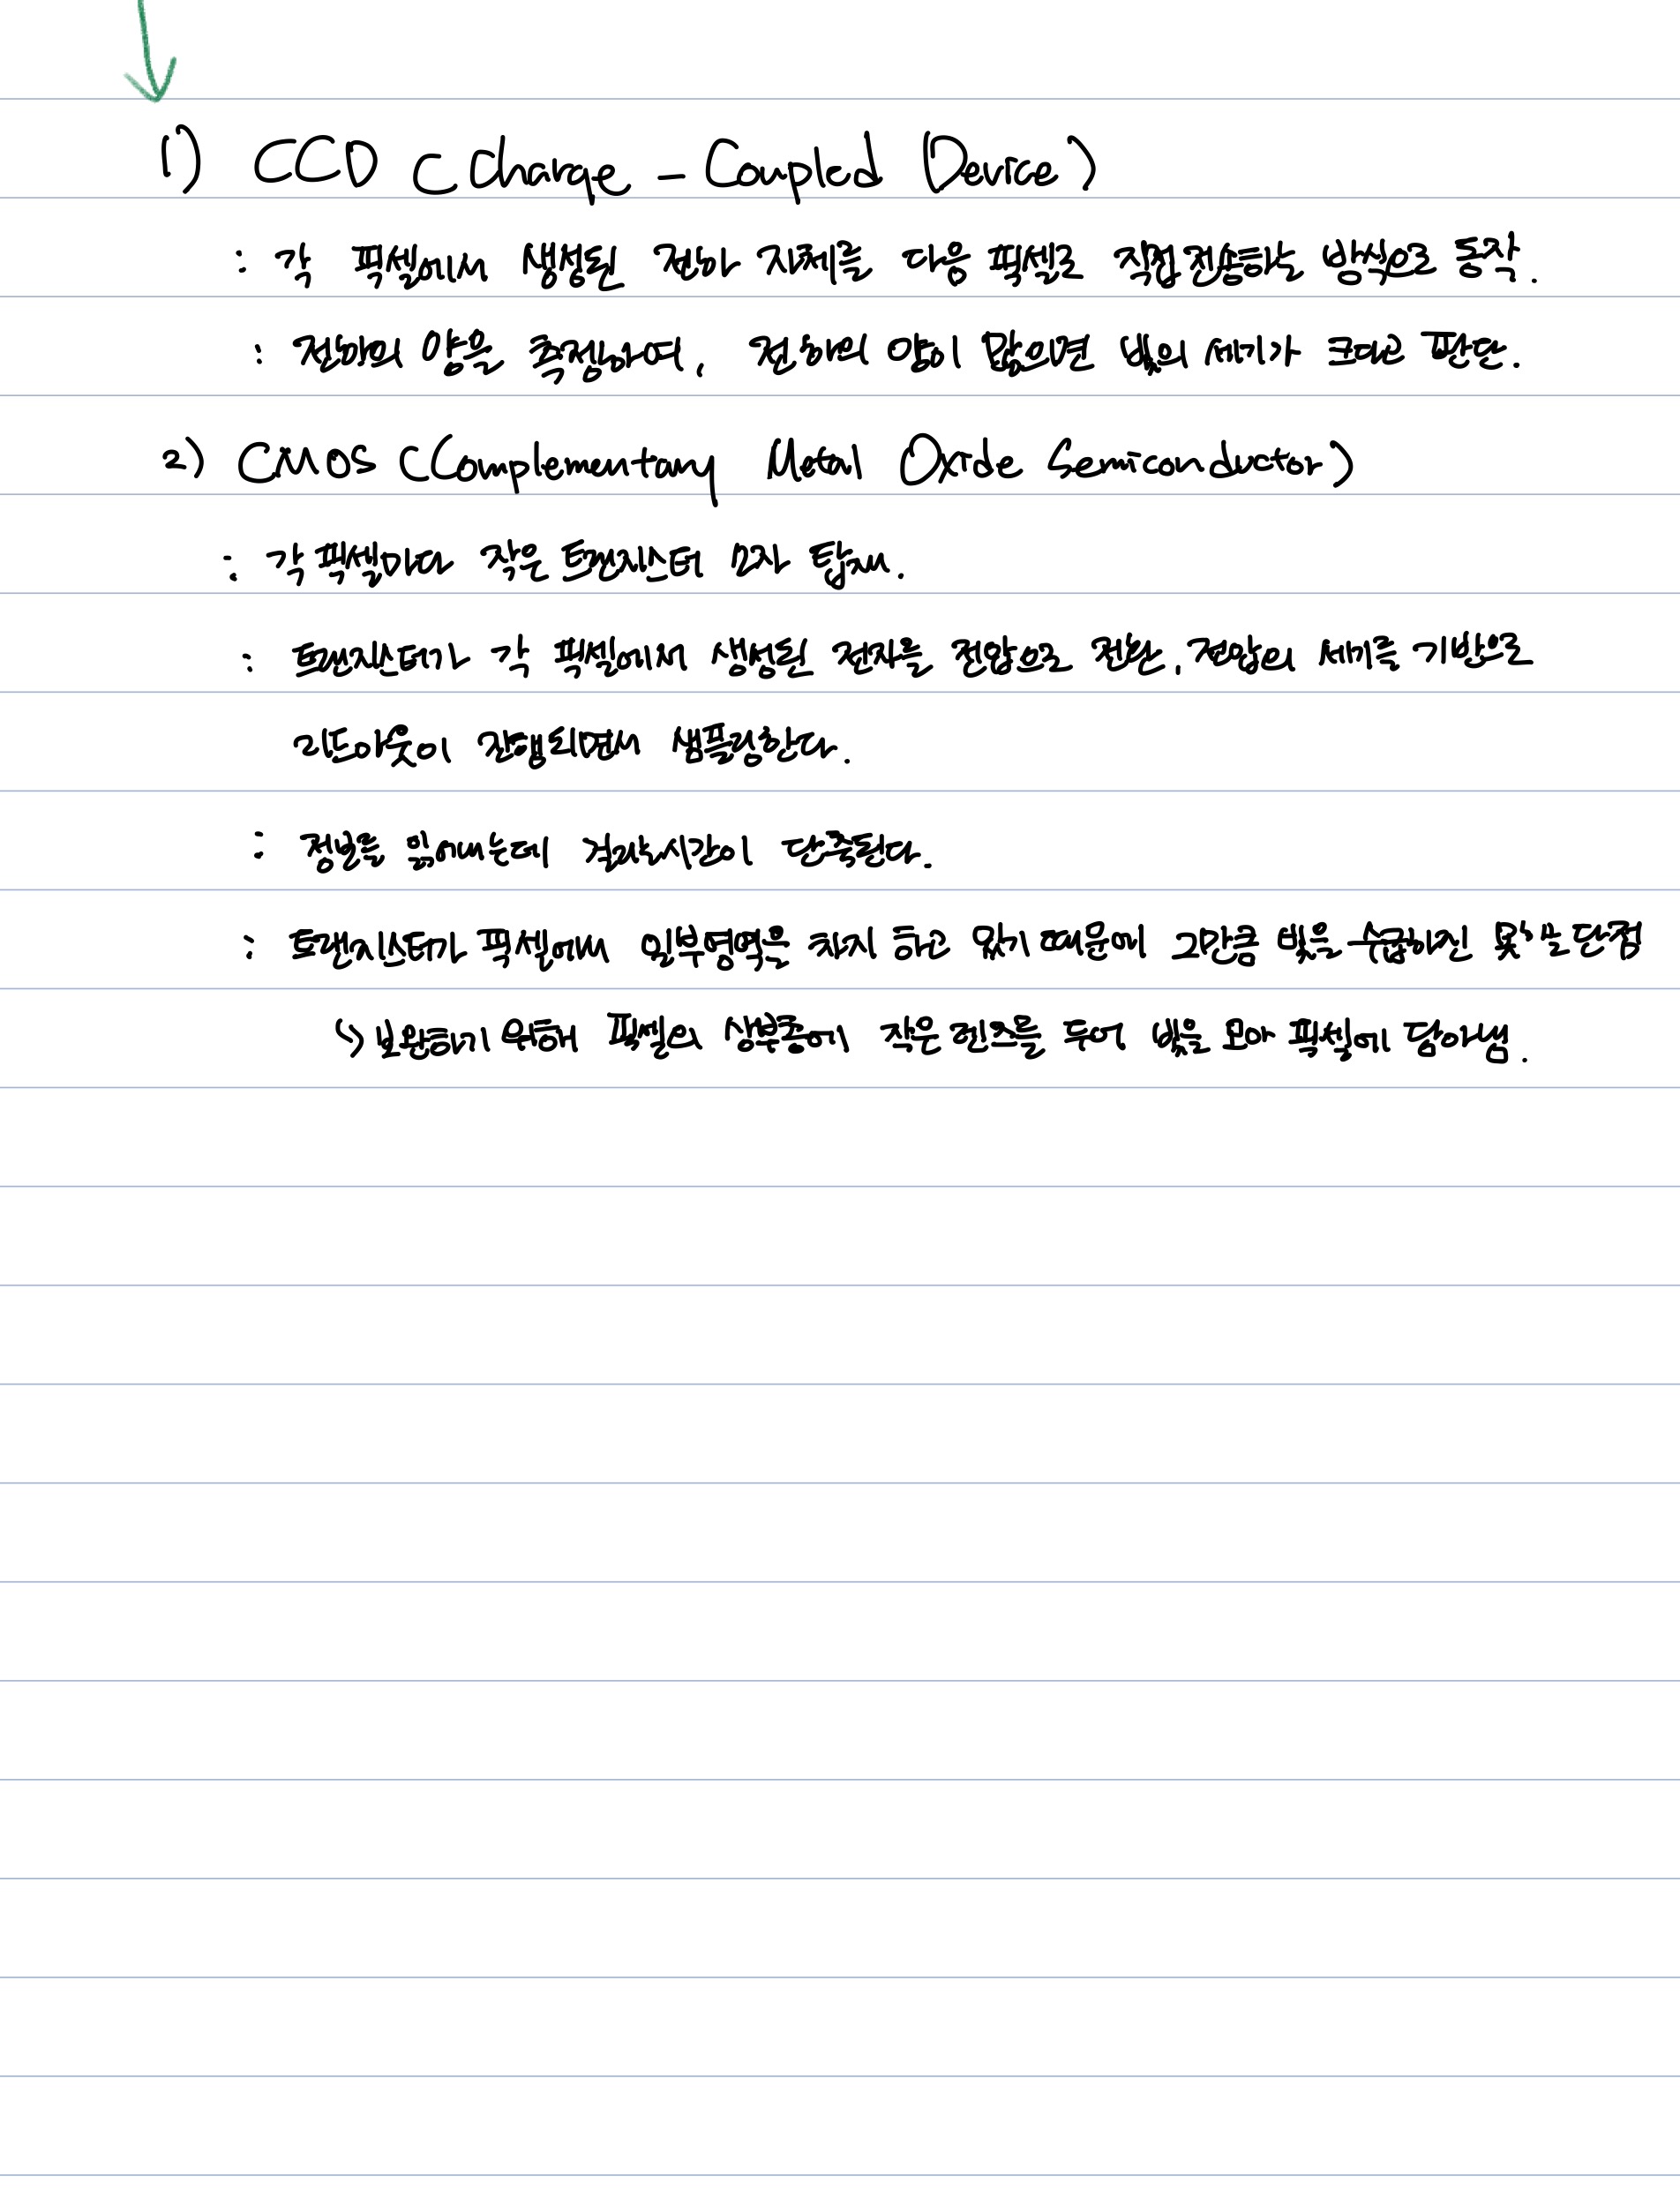 1) CCD (Charge - Coupled Device)
: 각 픽셀에서 생성된 전하 자체를 다음 픽셀로 직접 전송하는 방식으로 동작.
: 전하의 양을 측정하여, 전하의 양이 많으면 빛의 세기가 크다고 판단.
2) CMOS (Complementary Metal Oxide Semiconductor)
: 각 픽셀마다 작은 트랜지스터 탑재.
: 트랜지스터가 각 픽셀에서 생성된 전자를 전압으로 전환, 전압의 세기를 기반으로
리드아웃이 진행되면서 샘플링한다.
: 정보를 읽어내는데 걸리는 시간이 단축된다.
: 트랜지스터가 픽셀에서 일부영역을 차지 하고 있기 때문에 그만큼 빛을 수굽하진 못하는 단점
↳ 보완하기 위해 픽셀의 상부층에 작은 렌즈를 두어 빛을 모아 픽셀에 담아냄.